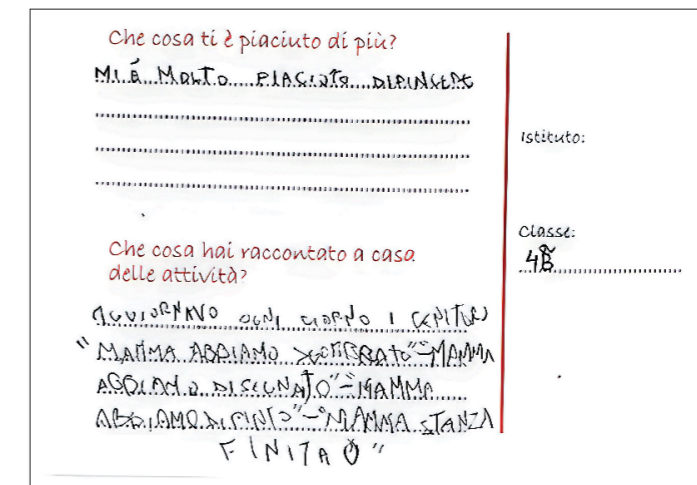 Che cosa ti è piaciuto di più?
MI È MOLTO PIACIUTO DIPINGERE
Istituto:
Classe:
4B
Che cosa hai raccontato a casa
delle attività?
AGGIORNAVO OGNI GIORNO I GENITORI
"MAMMA ABBIAMO SGOMBRATO"-"MAMMA
ABBIAMO DISEGNATO"-"MAMMA
ABBIAMO DIPINTO"-"MAMMA STANZA
FINITA"